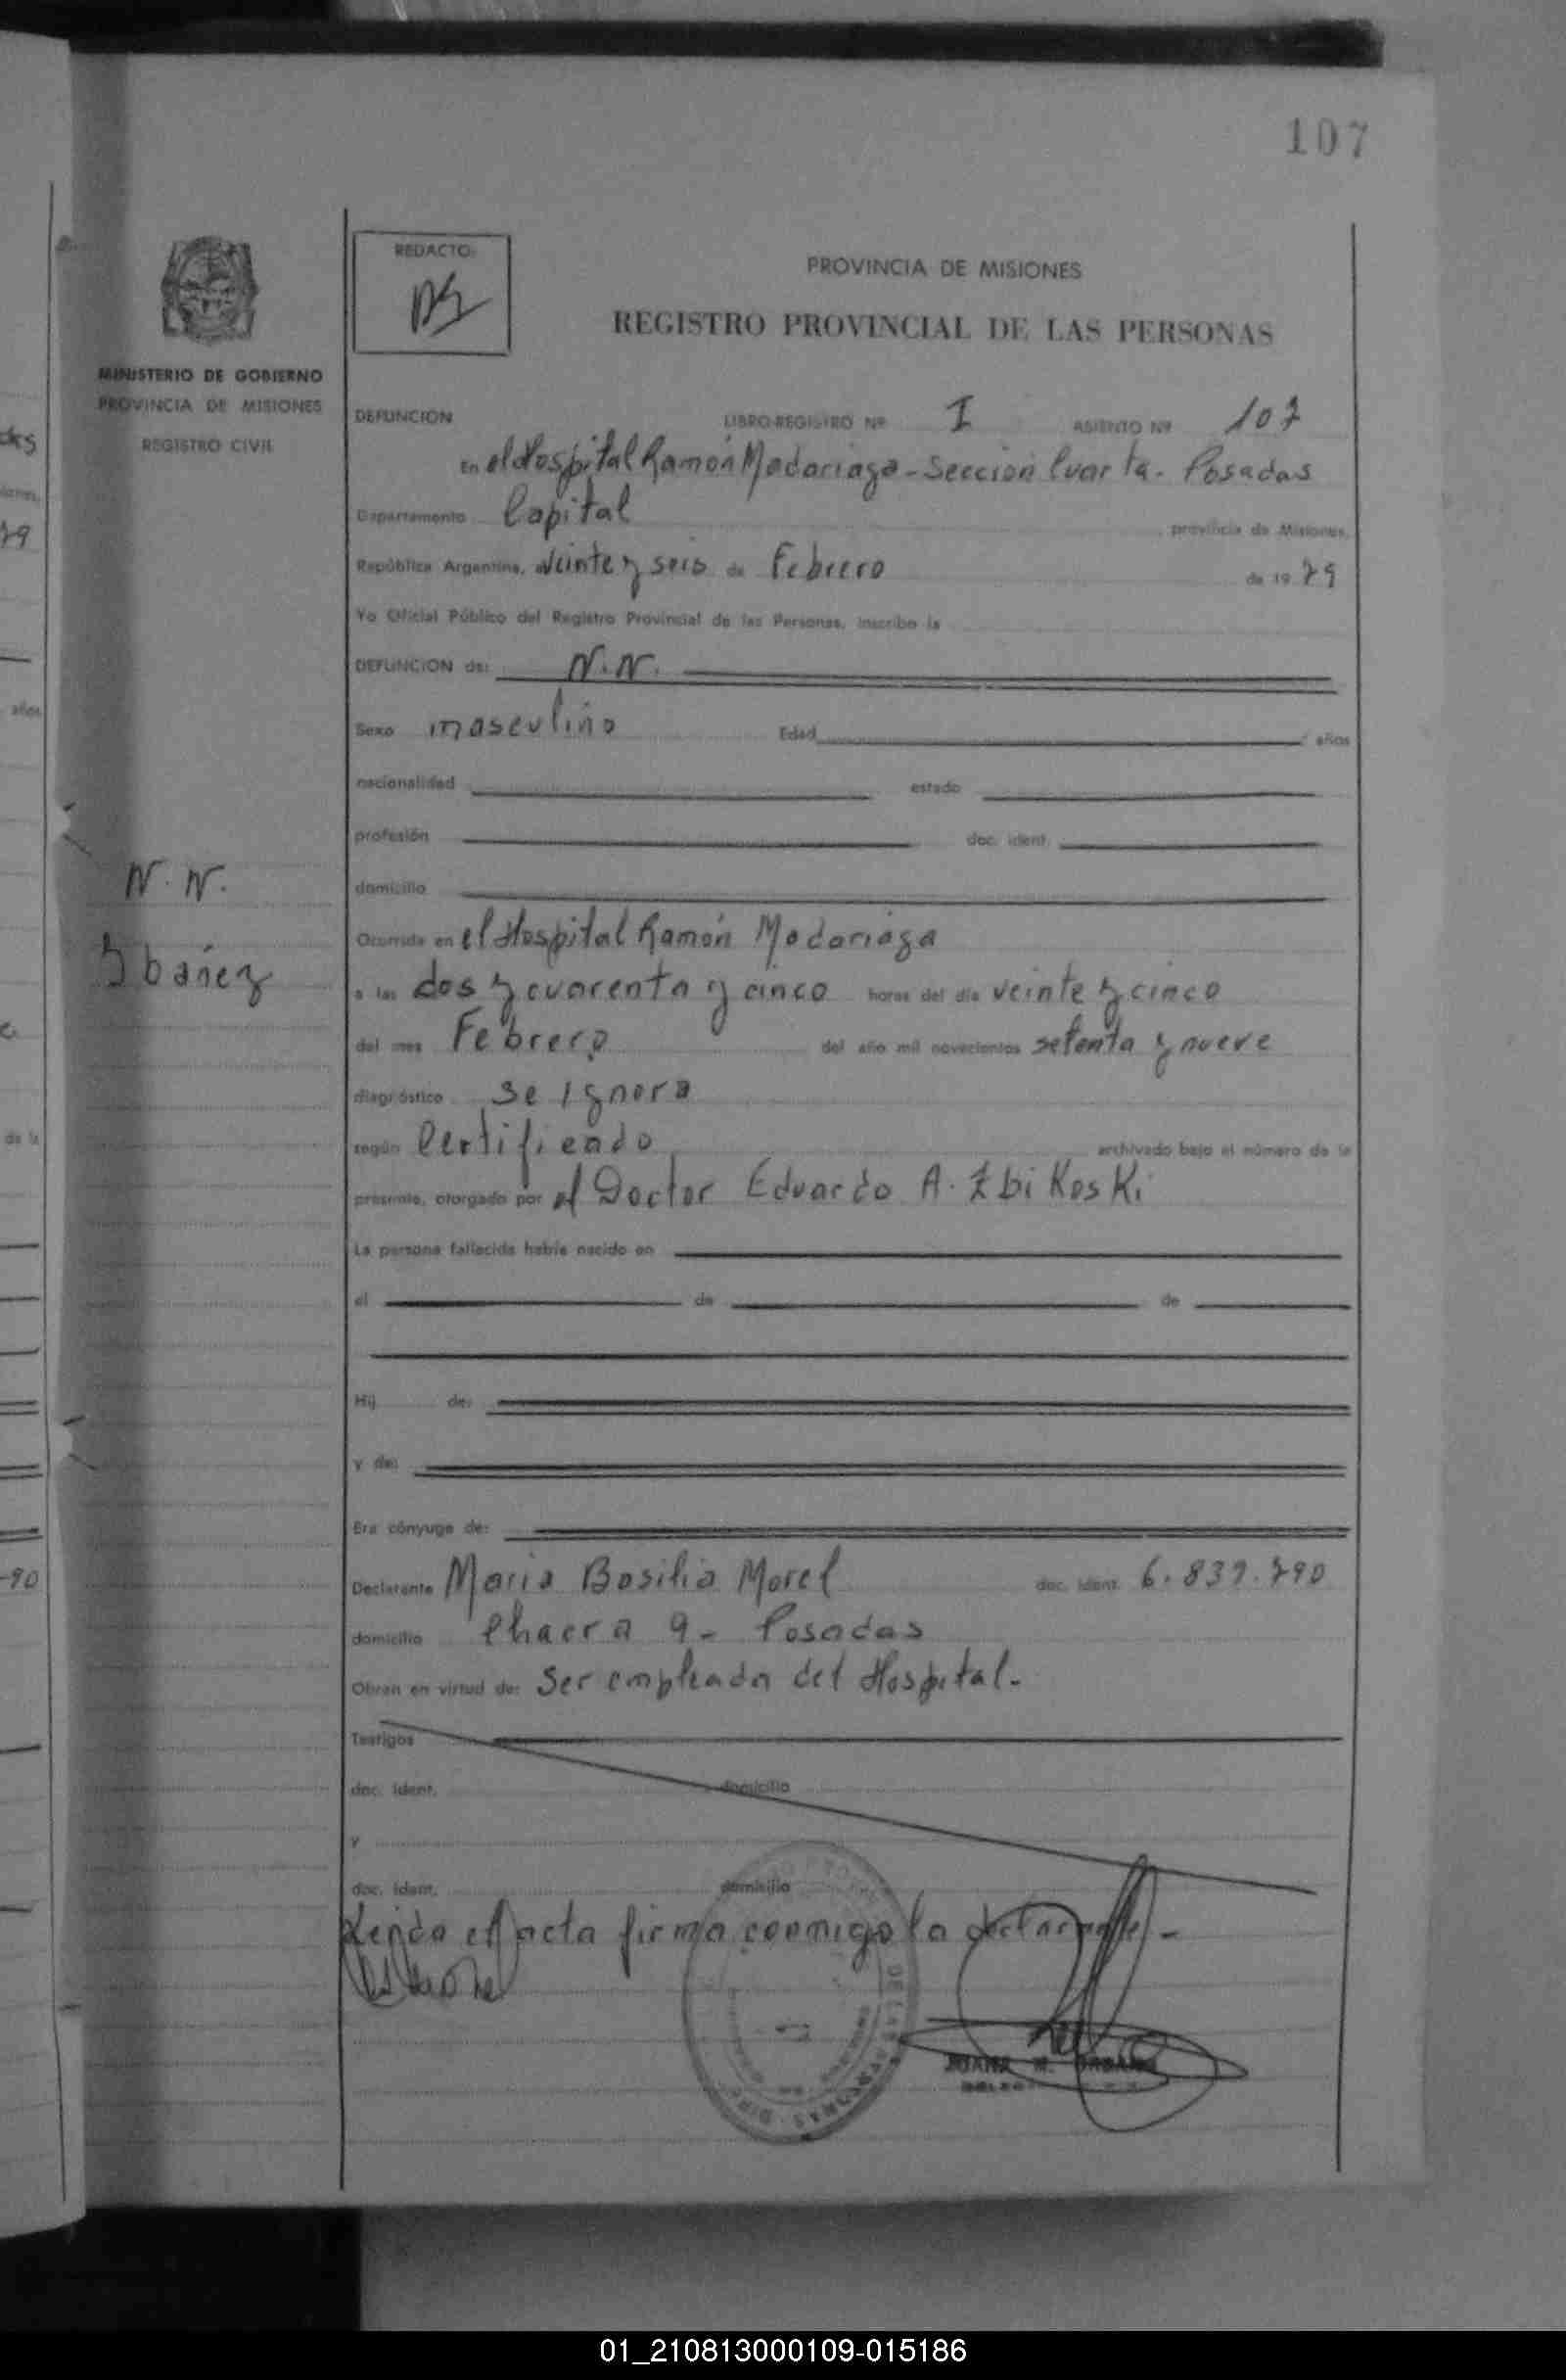 107
REDACTO:
PROVINCIA DE MISIONES
REGISTRO PROVINCIAL DE LAS PERSONAS
MINISTERIO DE GOBIERNO
PROVINCIA DE MISIONES
REGISTRO CIVIL
DEFUNCION LIBRO-REGISTRO Nº I ASIENTO Nº 107
En el Hospital Ramón Madariaga - Sección Cuarta - Posadas
Departamento Capital provincia de Misiones,
República Argentina, a Veinte y seis de Febrero de 1979
Yo Oficial Público del Registro Provincial de las Personas, inscribo la
DEFUNCION de: N.N.
Sexo masculino Edad años
nacionalidad estado
profesión doc. ident.
N. N.
domicilio
Ocurrida en el Hospital Ramón Madariaga
Ibañez
a las dos y cuarenta y cinco horas del día veinte y cinco
del mes Febrero del año mil novecientos setenta y nueve
diagnóstico se ignora
según Certificado archivado bajo el número de la
presente, otorgado por el Doctor Eduardo A. Zbikoski
La persona fallecida había nacido en
el de de
Hij de:
y de:
Era cónyuge de:
Declarante Maria Basilia Morel doc. ident. 6.839.790
domicilio Chacra 9 - Posadas
Obran en virtud de: Ser empleada del Hospital.
Testigos
doc. ident. domicilio
y
doc. ident. domicilio
Leida el acta firma conmigo la declarante -
DE LAS PERSONAS
JUANA
01_210813000109-015186